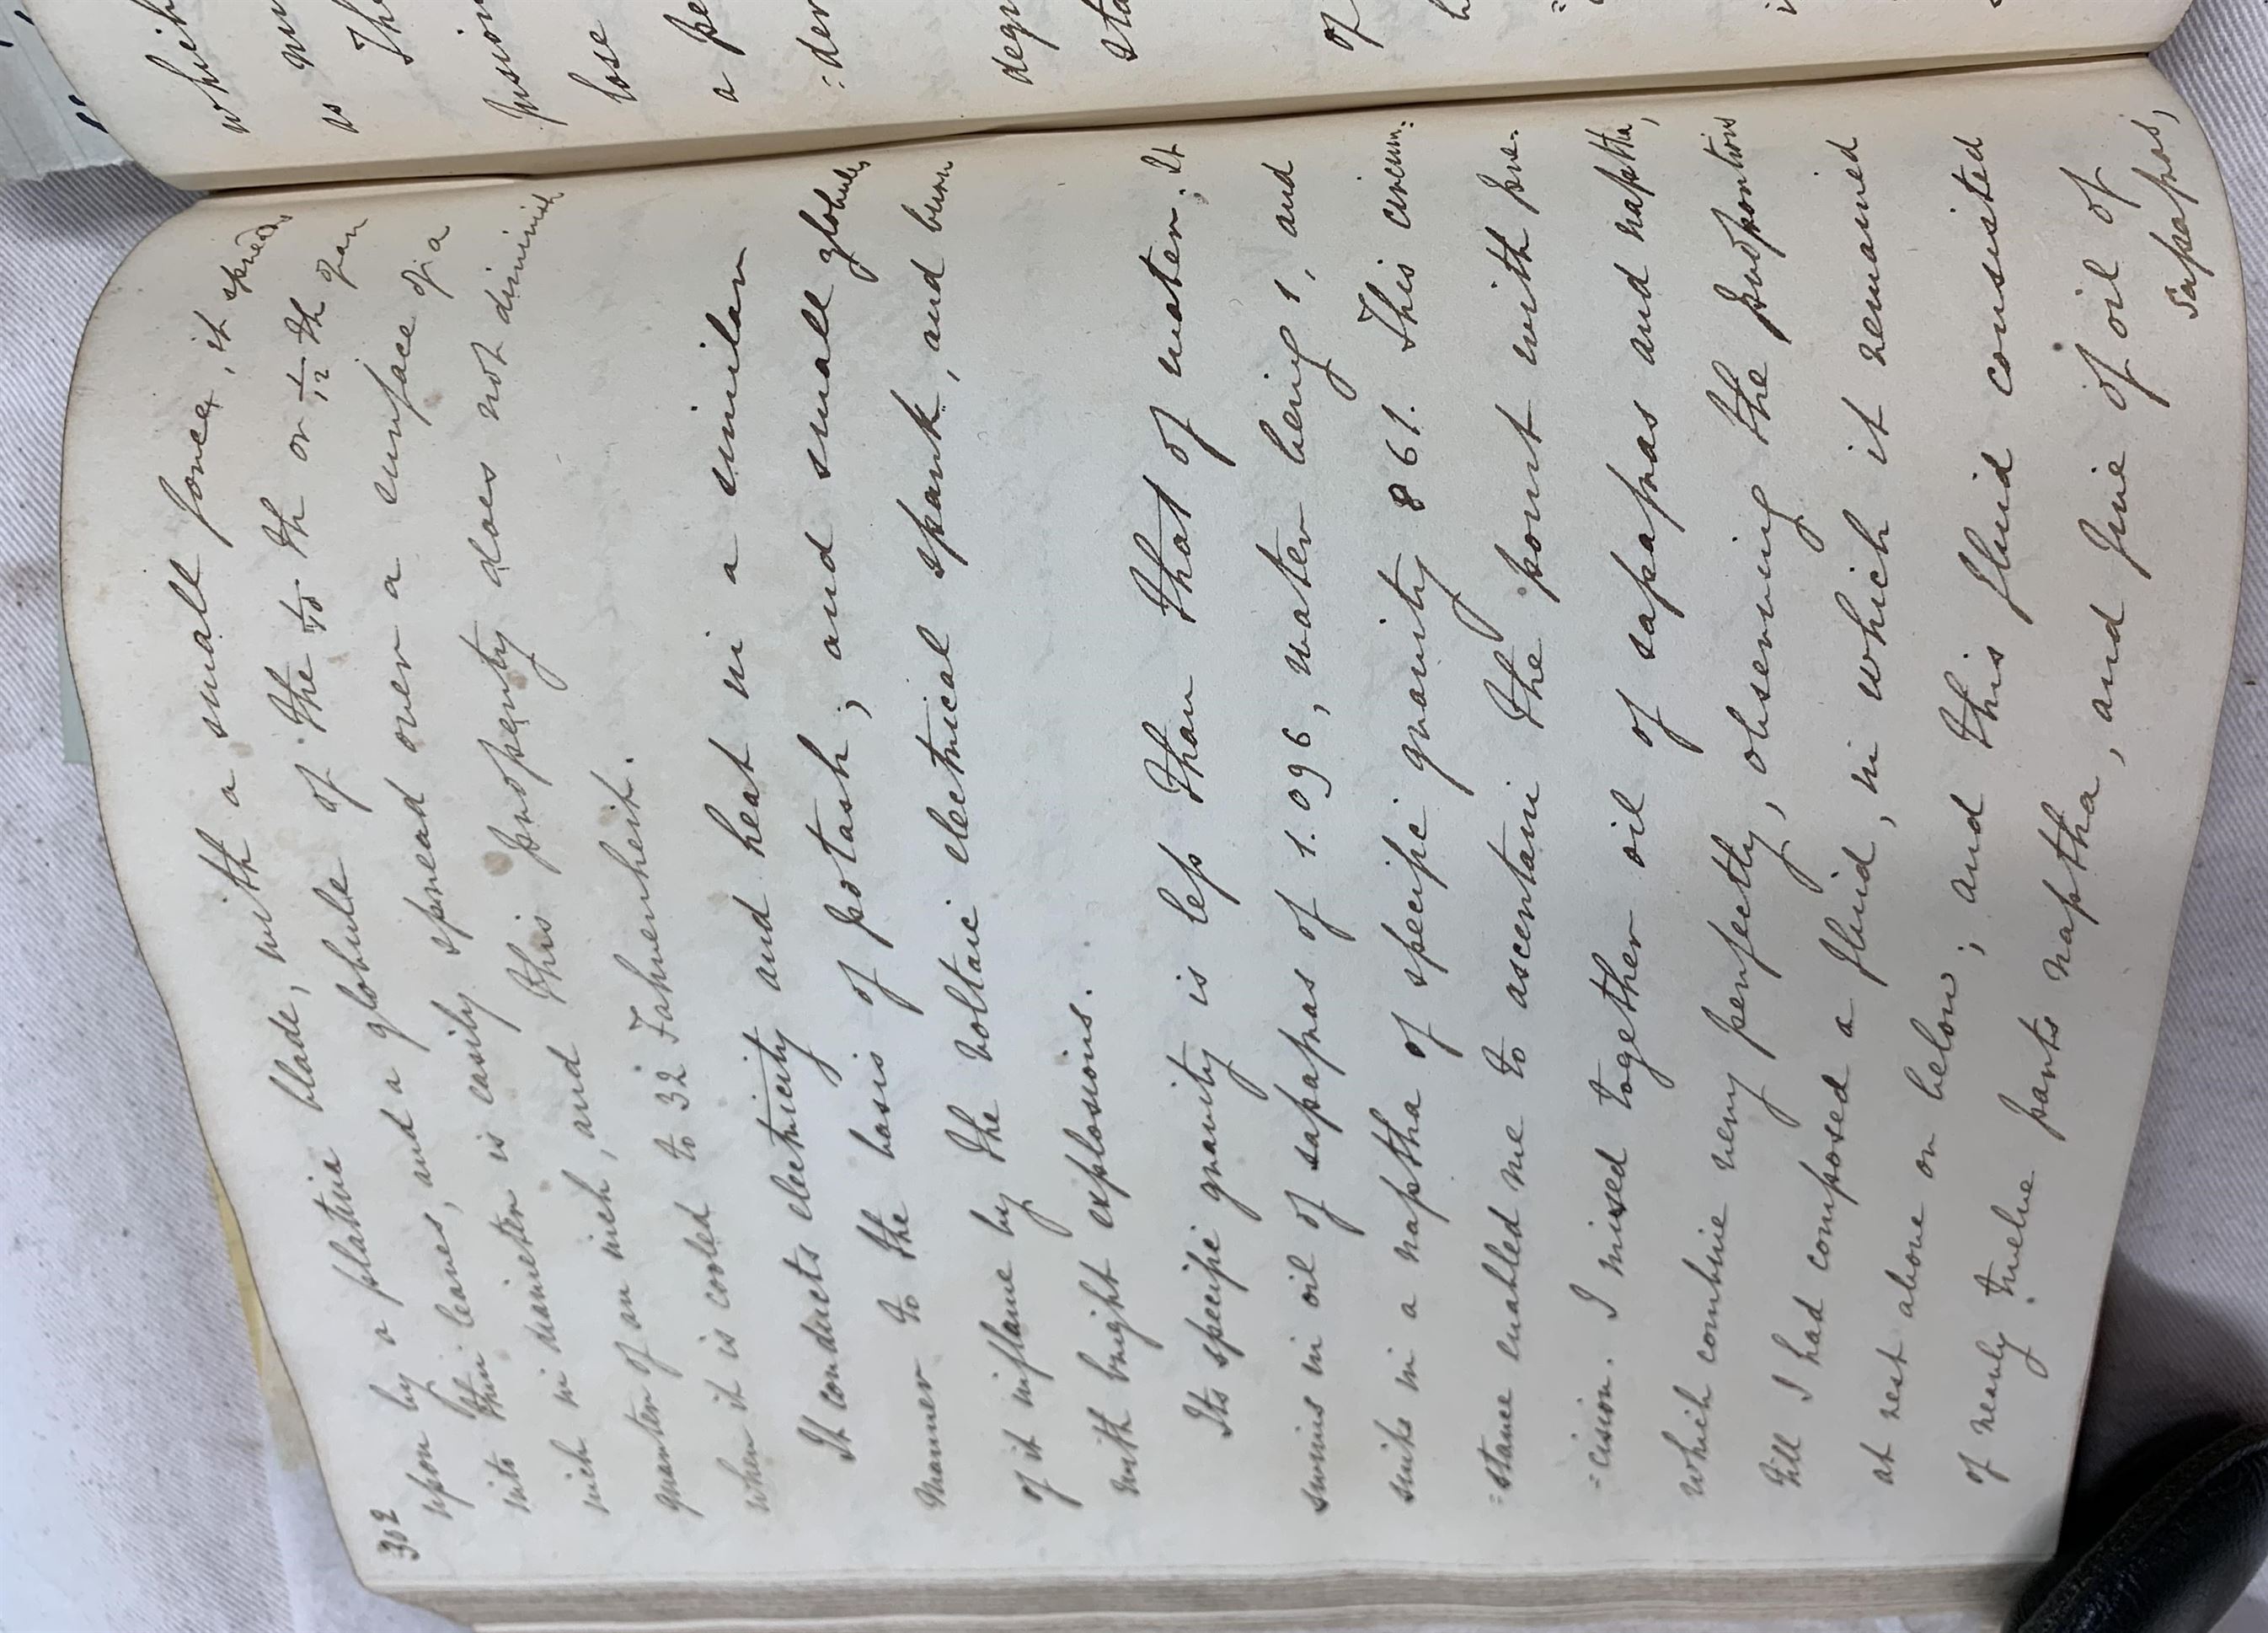 302
upon by a platina blade, with a small force, it spreads
into thin leaves, and a globule of the 1/10 th or 1/12 th of an
inch in diameter is easily spread over a surface of a
quarter of an inch, and this property does not diminish
when it is cooled to 32° Fahrenheit.
It conducts electricity and heat in a similar
manner to the basis of potash; and small globules
of it inflame by the voltaic electrical spark, and burn
with bright explosions.
Its specific gravity is less than that of water. It
swims in oil of sassafras of 1.096, water being 1, and
sinks in a naptha of specific gravity 861. This circum:
=stance enabled me to ascertain the point with pre-
=cision. I mixed together oil of sassafras and naptha,
which combine very perfectly, observing the proportions
till I had composed a fluid, in which it remained
at rest above or below; and this fluid consisted
of nearly twelve parts naptha, and five of oil of
sassafras,
which
as
The
fusion
lose
a pe
:der
degr
sta
of